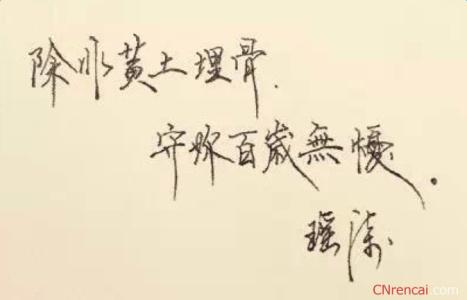 除非黄土埋骨.
守你百歲無憂.
瑶
CNrencai.com